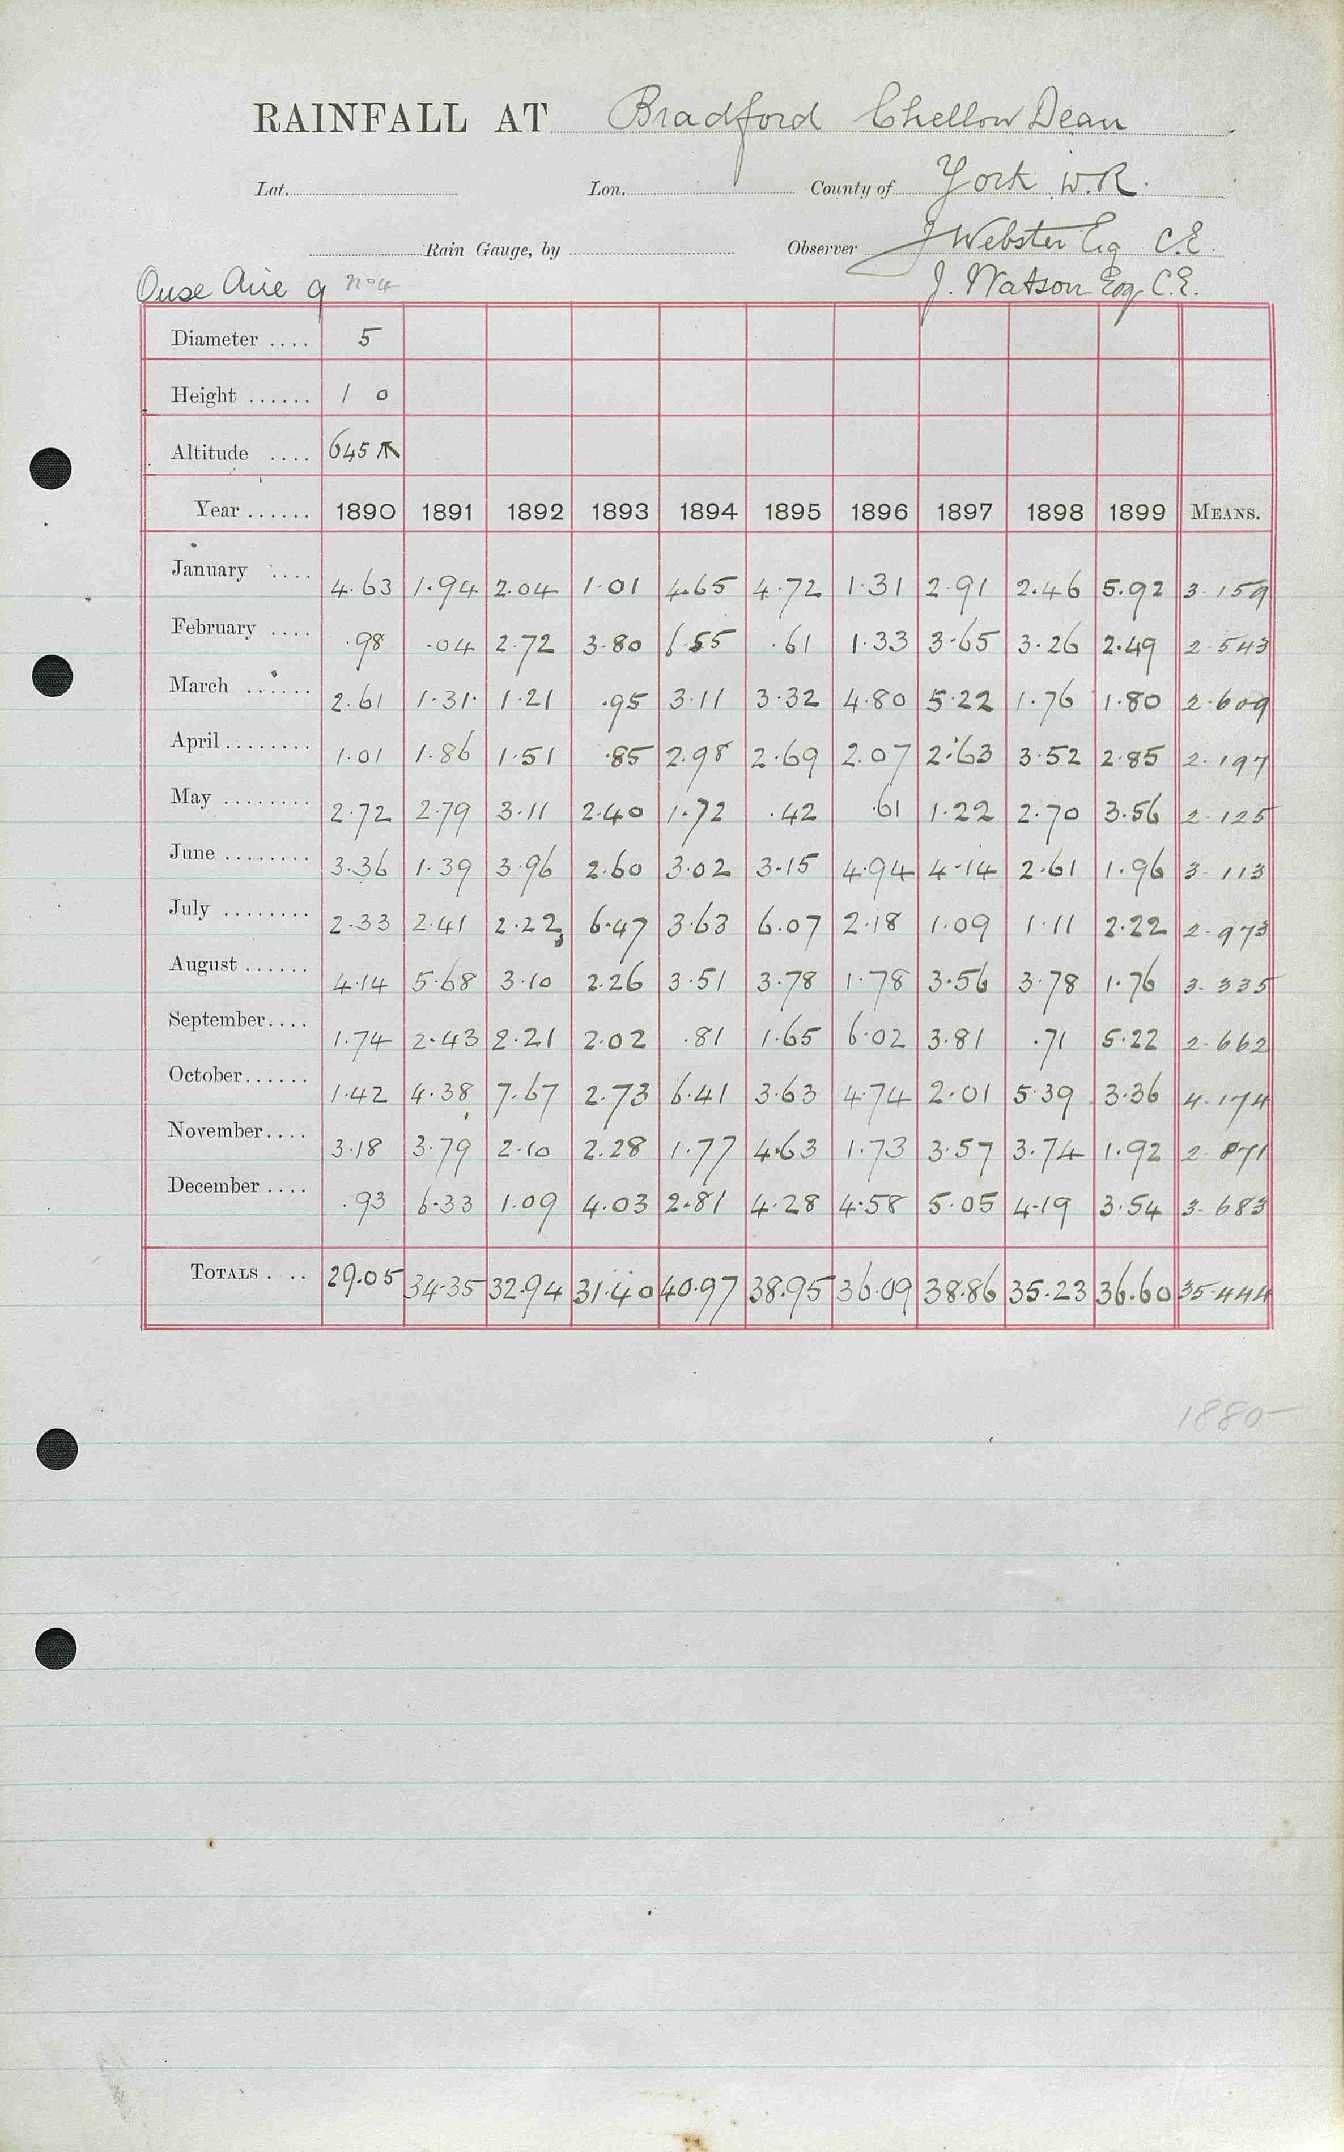 RAINFALL AT Bradford Chellow Dean
Lat. Lon. County of York W.R.
Rain Gauge, by Observer J Webster Esq C.E.
Ouse Aire 9 J. Watson Esq C.E.
Diameter .... 5
Height ...... 1 0
Altitude .... 645
Year ...... 1890 1891 1892 1893 1894 1895 1896 1897 1898 1899 MEANS.
January .... 4.63 1.94 2.04 1.01 4.65 4.72 1.31 2.91 2.46 5.92 3.159
February .... .98 .04 2.72 3.80 6.55 .61 1.33 3.65 3.26 2.49 2.543
March ...... 2.61 1.31 1.21 .95 3.11 3.32 4.80 5.22 1.76 1.80 2.609
April ........ 1.01 1.86 1.51 .85 2.98 2.69 2.07 2.63 3.52 2.85 2.197
May ........ 2.72 2.79 3.11 2.40 1.72 .42 .61 1.22 2.70 3.56 2.125
June ........ 3.36 1.39 3.96 2.60 3.02 3.15 4.94 4.14 2.61 1.96 3.113
July ........ 2.33 2.41 2.22 6.47 3.63 6.07 2.18 1.09 1.11 2.22 2.973
August ...... 4.14 5.68 3.10 2.26 3.51 3.78 1.78 3.56 3.78 1.76 3.335
September .... 1.74 2.43 2.21 2.02 .81 1.65 6.02 3.81 .71 5.22 2.662
October ...... 1.42 4.38 7.67 2.73 6.41 3.63 4.74 2.01 5.39 3.36 4.174
November .... 3.18 3.79 2.10 2.28 1.77 4.63 1.73 3.57 3.74 1.92 2.871
December .... .93 6.33 1.09 4.03 2.81 4.28 4.58 5.05 4.19 3.54 3.683
TOTALS .... 29.05 34.35 32.94 31.40 40.97 38.95 36.09 38.86 35.23 36.60 35.444
1880-